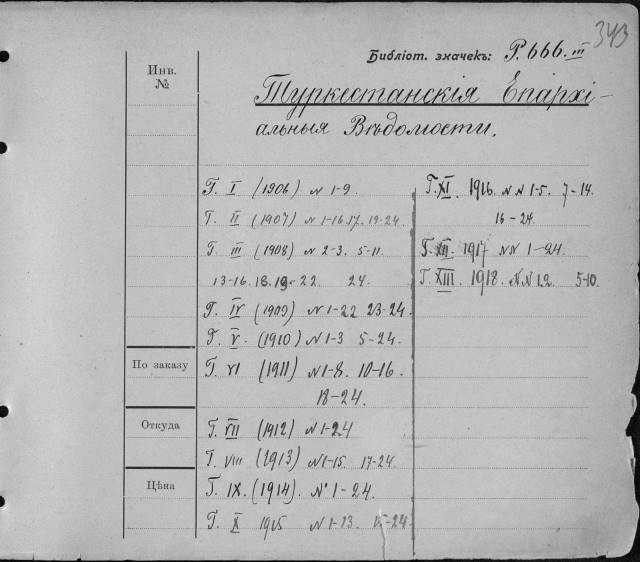 343
Библіот. значекъ: Р.666.III
Инв.
№
Туркестанскія Епархі-
альныя Вѣдомости.
Г. I (1906) N 1-9.
Г. II (1907) N 1-16.17. 19-24.
Г. III (1908) N 2-3. 5-11.
13-16. 18.19-22. 24.
Г. IV (1909) N 1-22 23-24.
Г. V. (1910) N 1-3 5-24.
По заказу
Г. VI (1911) N 1-8. 10-16.
18-24.
Откуда
Г. VII (1912) N 1-24
Г. VIII (1913) N 1-15. 17-24.
Цѣна
Г. IX. (1914). N° 1-24.
Г. X 1915 N 1-13. 15-24.
Г. XI. 1916. N N 1-5. 7-14.
16-24.
Г. XII. 1917 N N 1-24.
Г. XIII. 1918. N N 1.2. 5-10.